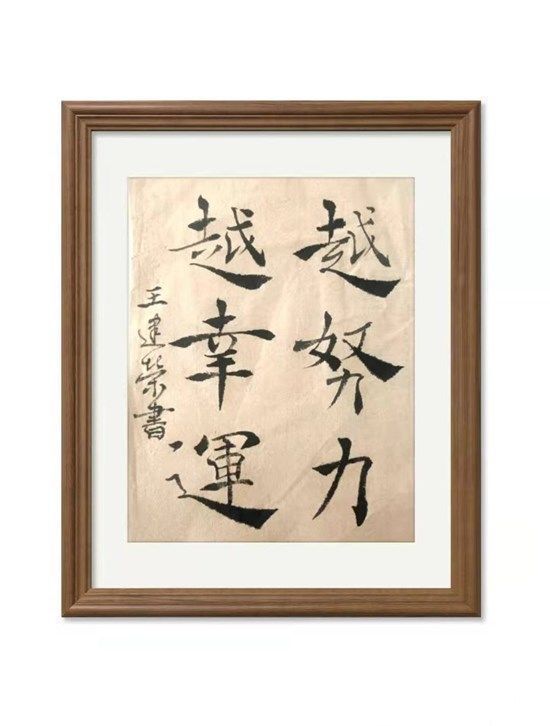 越努力
越幸運
王建榮書